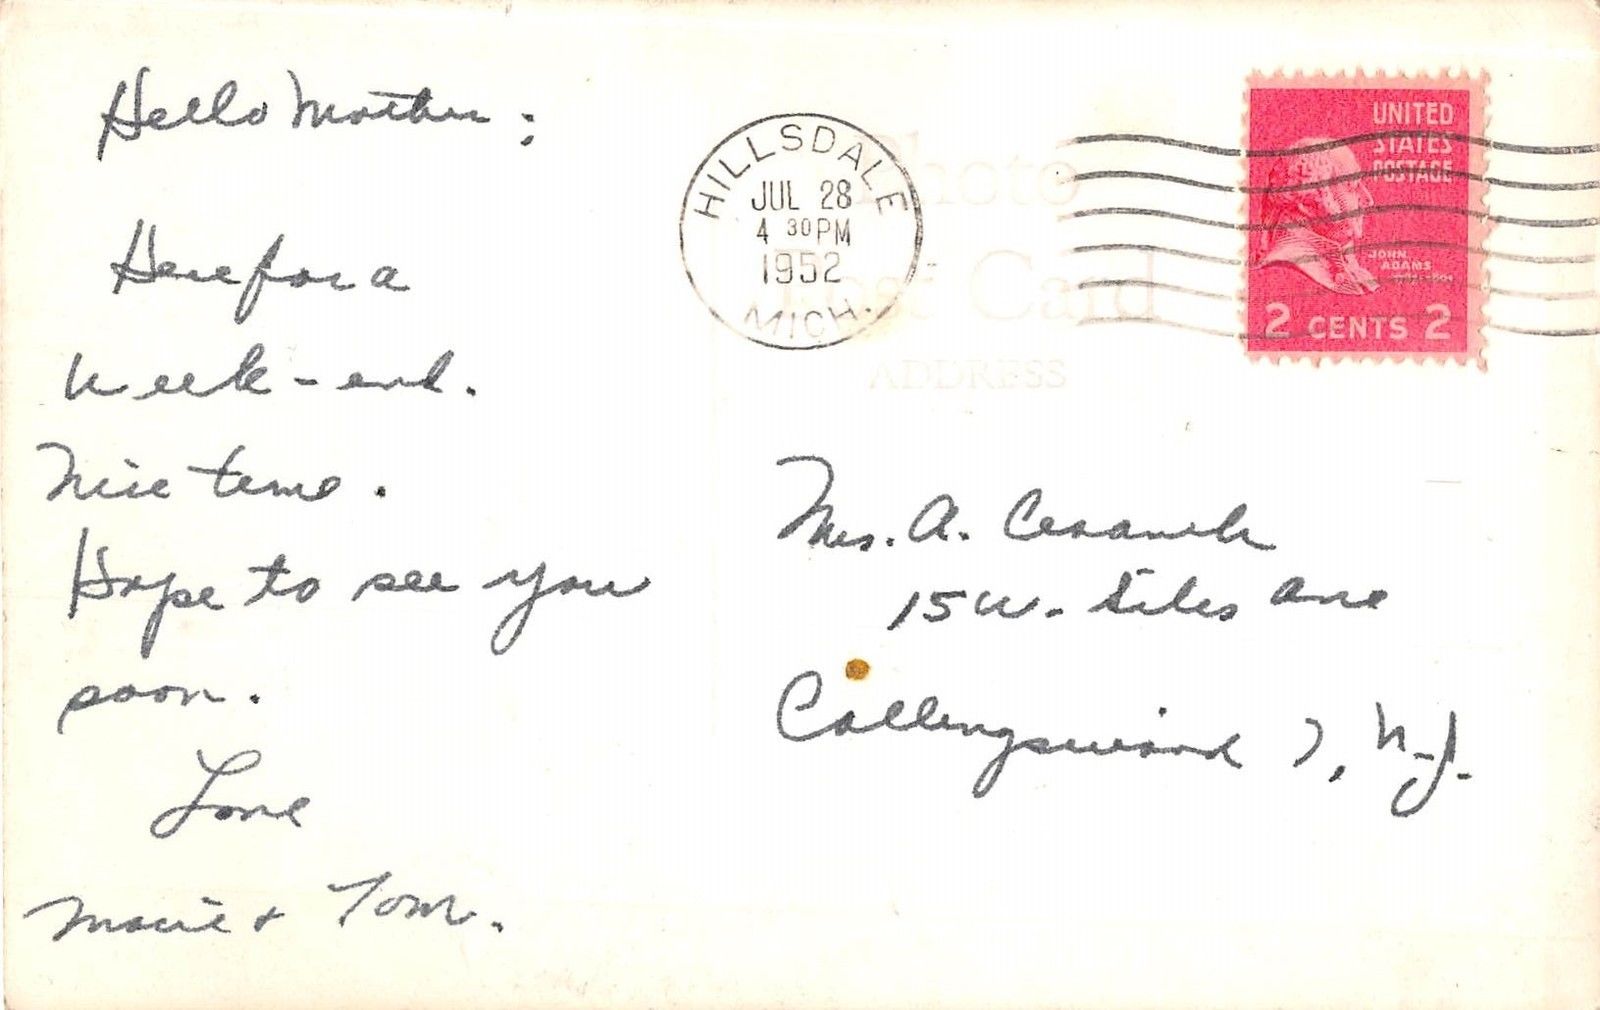 Hello Mother;
Here for a
week-end.
Nice time.
Hope to see you
soon.
Love
Marie + Tom.
HILLSDALE
JUL 28
4 30 PM
1952
MICH.
Photo
Post Card
ADDRESS
UNITED
STATES
POSTAGE
JOHN
ADAMS
2 CENTS 2
Mrs. A.
15 W. Stiles Ave
Collingswood 7, N.J.